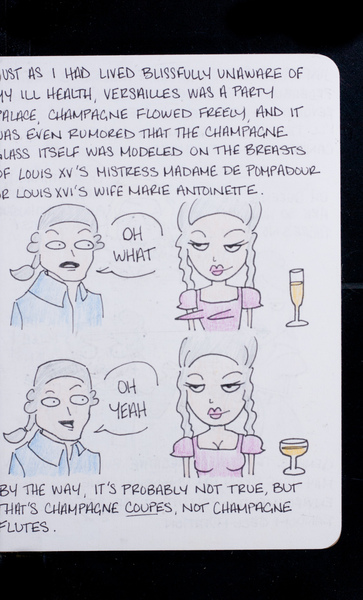 JUST AS I HAD LIVED BLISSFULLY UNAWARE OF
MY ILL HEALTH, VERSAILLES WAS A PARTY
PALACE, CHAMPAGNE FLOWED FREELY, AND IT
WAS EVEN RUMORED THAT THE CHAMPAGNE
GLASS ITSELF WAS MODELED ON THE BREASTS
OF LOUIS XV'S MISTRESS MADAME DE POMPADOUR
OR LOUIS XVI'S WIFE MARIE ANTOINETTE.
OH
WHAT
OH
YEAH
BY THE WAY, IT'S PROBABLY NOT TRUE, BUT
THAT'S CHAMPAGNE COUPES, NOT CHAMPAGNE
FLUTES.